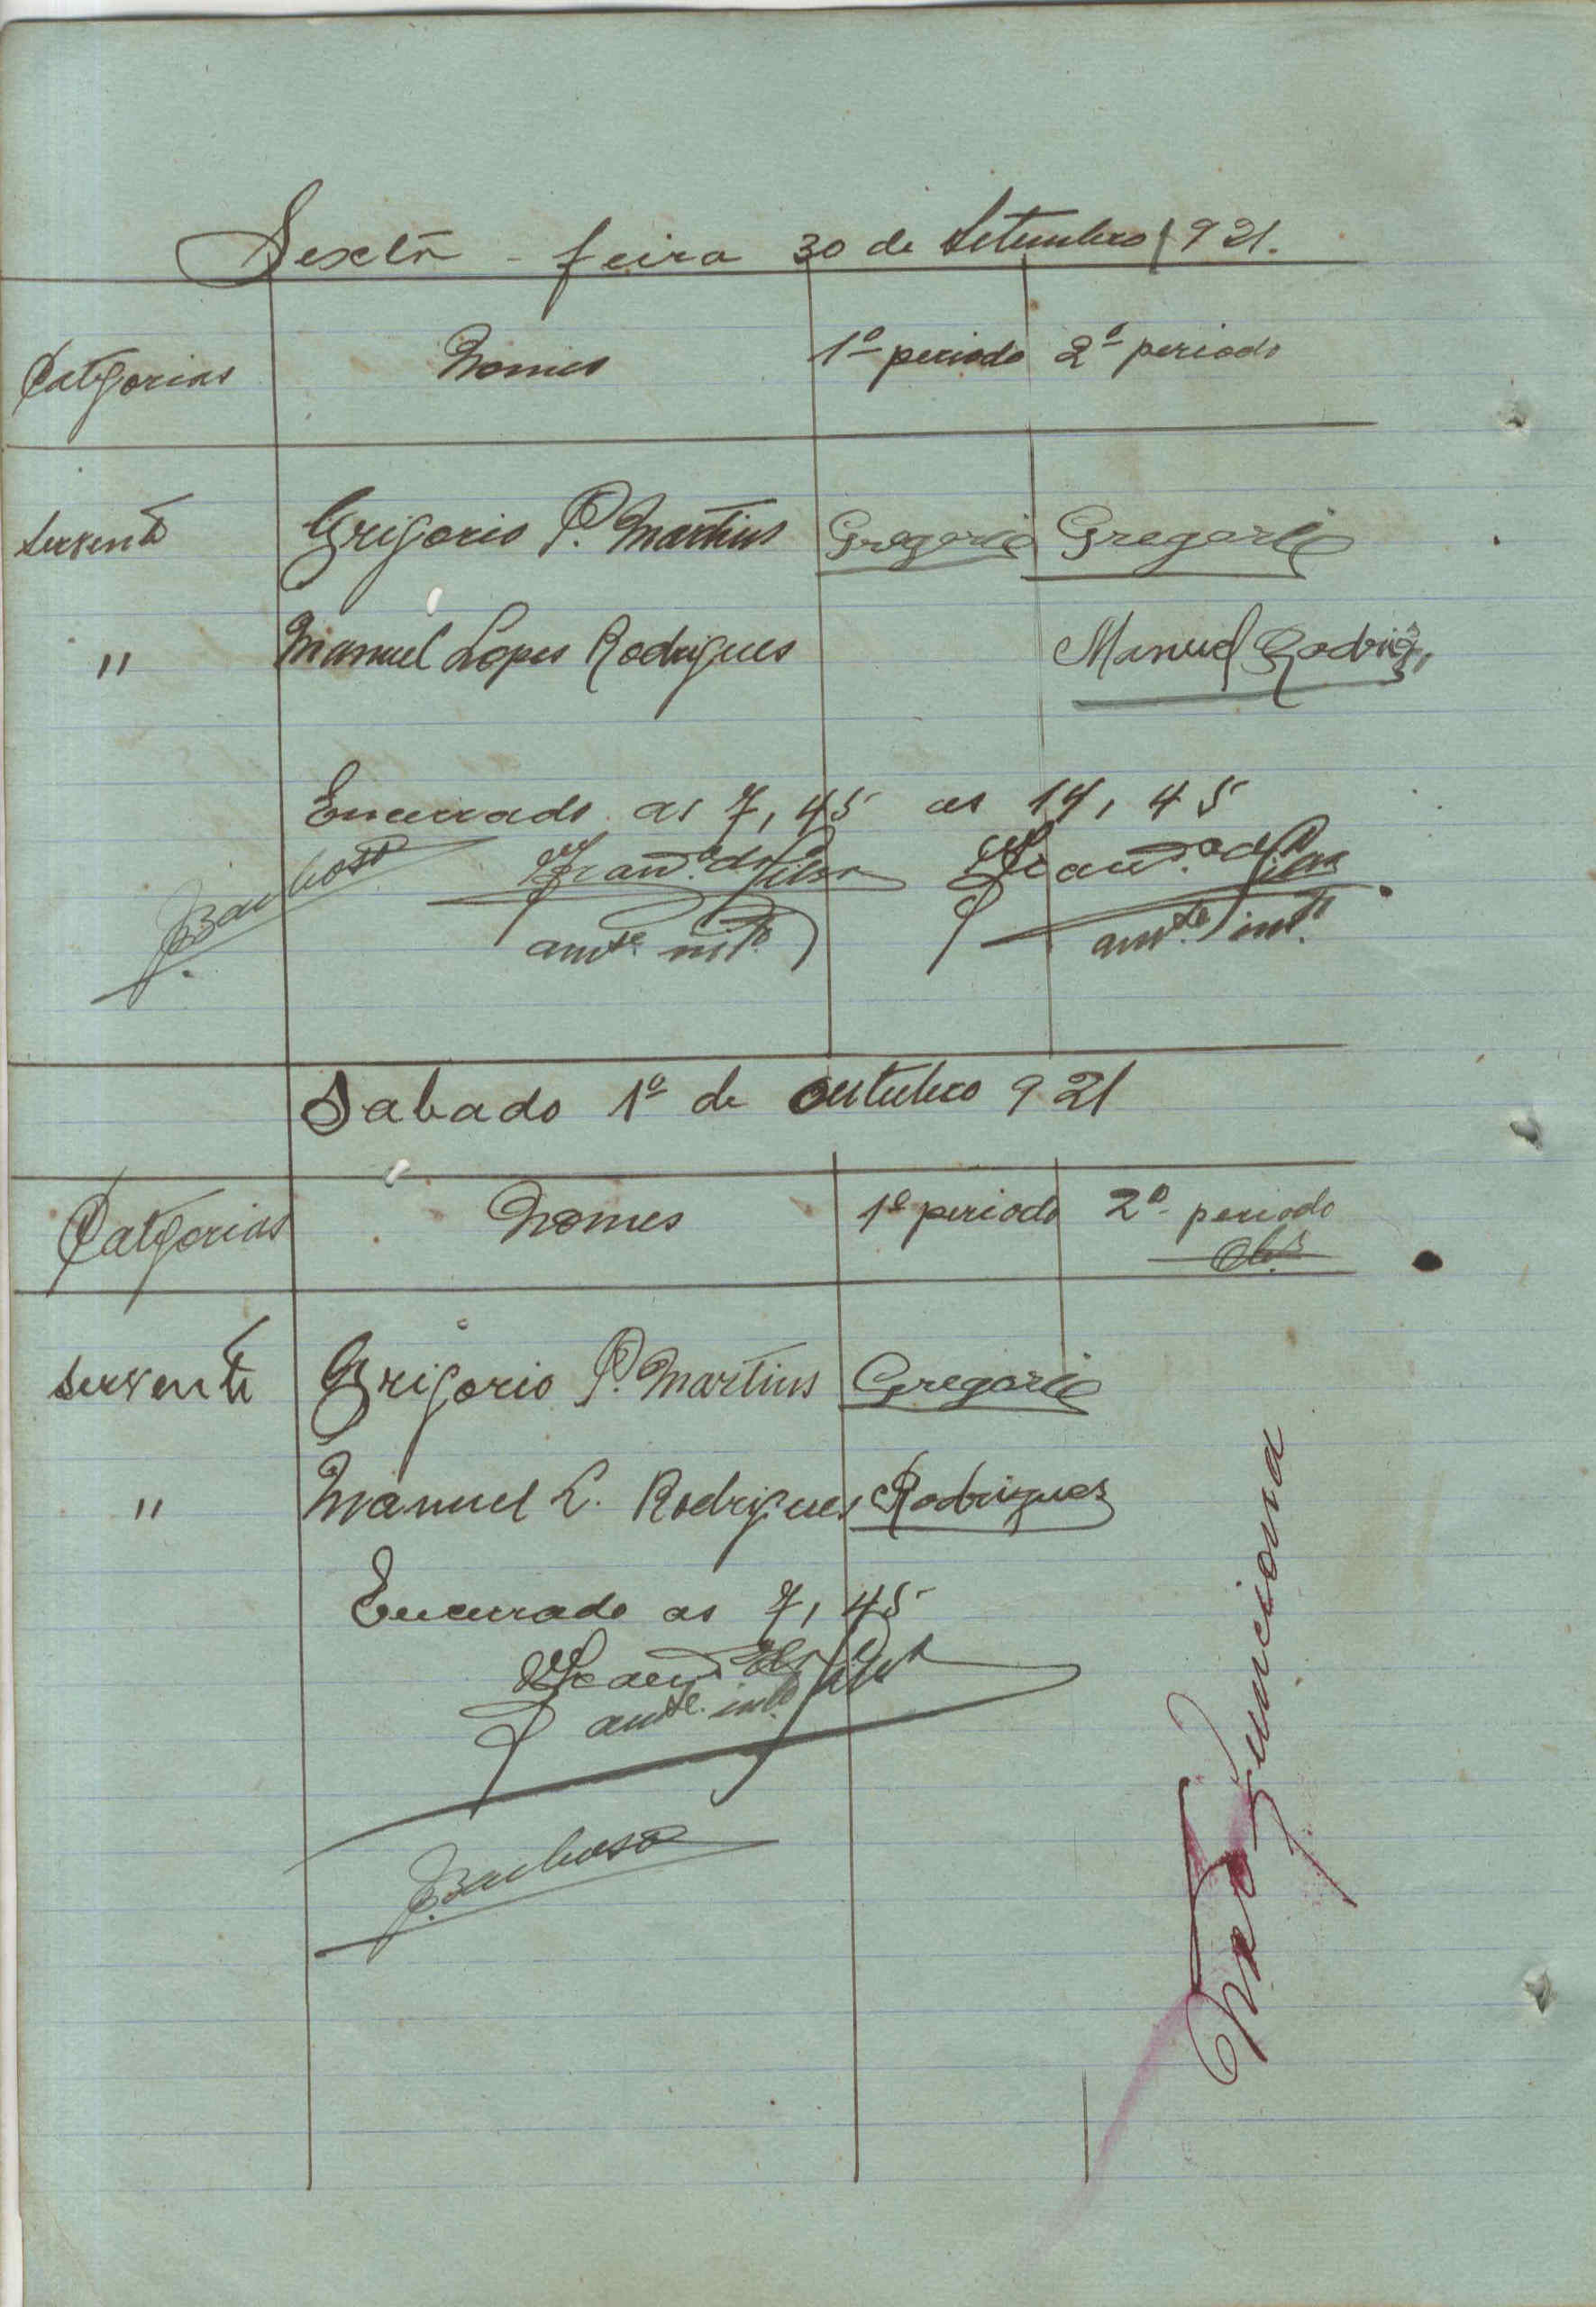 Sexta-feira 30 de Setembro 1921.
Categorias Nomes 1º periodo 2º periodo
Servente Grigorio P. Martins Gregorio Gregorio
" Manuel Lopes Rodrigues Manuel Rodrigs,
Encerrado as 7,45 as 14,45
Barbosa
amte. intº amte. intº
Sabado 1º de outubro 921
Categorias Nomes 1º periodo 2º periodo
Servente Grigorio P. Martins Gregorio
" Manuel L. Rodrigues Rodrigues
Encerrado as 7,45
amte. intº
Barbosa
Não funciona